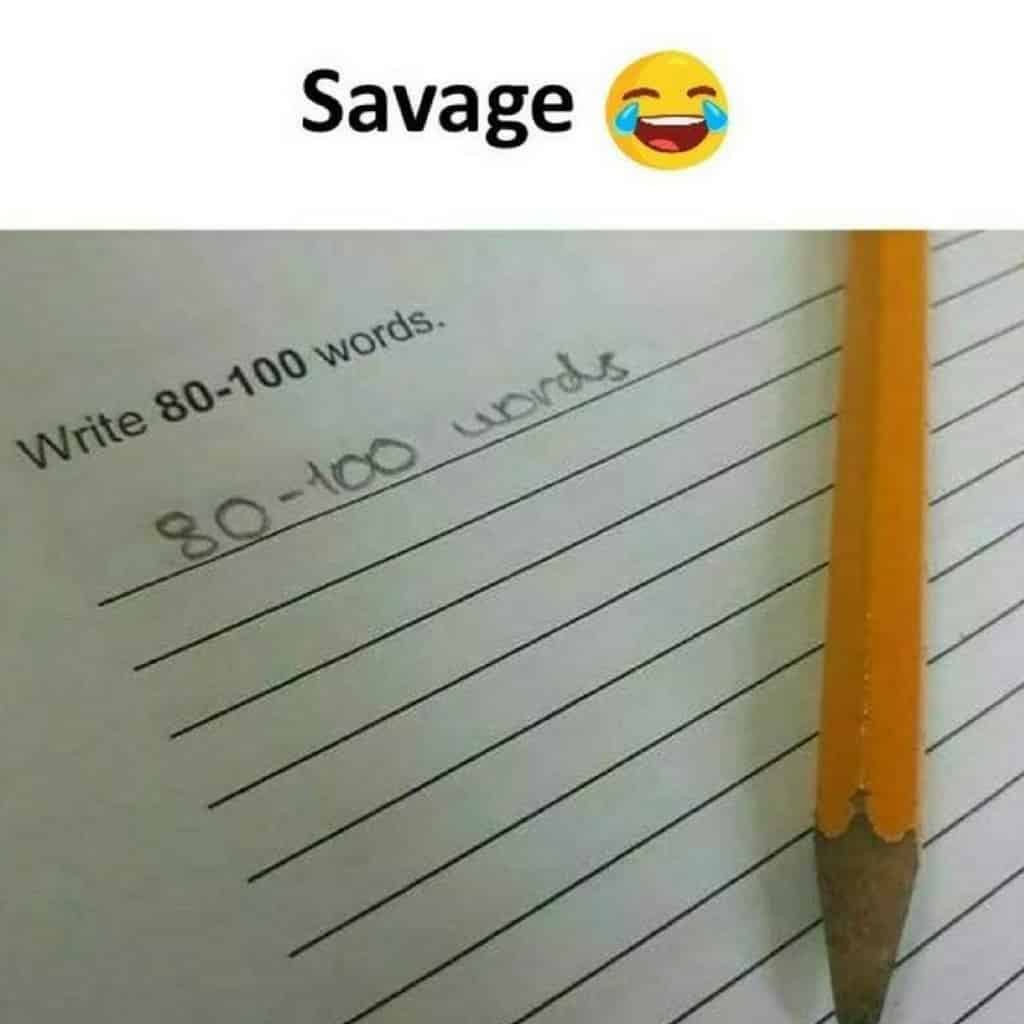 Savage 😂
Write 80-100 words.
80-100 words